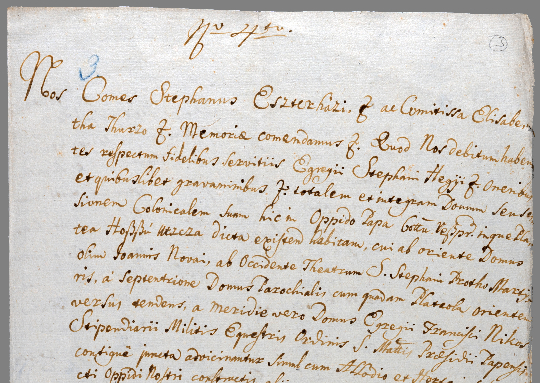 No 4to.
3
Nos Comes Stephanus Eszterházi f. ac Comitissa Elisabe-
tha Thurzo f. Memoriæ comendamus f. Quod Nos debitum haben
tes respectum fidelibus servitiis Egregii Stephani Hegyi f. omnibus
et quibuslibet gravaminibus f. totalem et integram Domum seu Ses
sionem Colonicalem suam hic in Oppido Papa Cottu inque Pla
tea Hoszszu utcza dicta existen habitam, cui ab oriente Domus
olim Ioannis Novai, ab Occidente Theatrum S. Stephani Protho Marty
ris, a Septentrione Domus Parochialis cum quadam Plateola orientem
versus tendens, a meridie vero Domus Egregii Francisci
Stipendiarii Militis Equestris Ordinis Præsidii Papensis
contigue juncta advicinantur simul cum
cti Oppidi Nostri